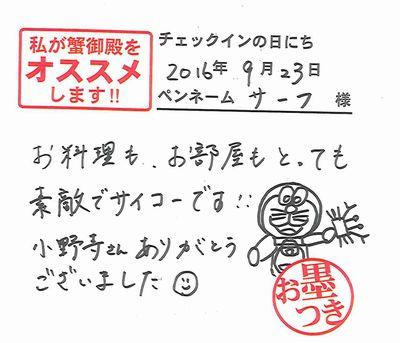 私が蟹御殿を
オススメ
します!!
チェックインの日にち
2016年 9月23日
ペンネーム サーフ 様
お料理も、お部屋もとっても
素敵でサイコーです!!
小野寺さんありがとう
ございました
お墨つき